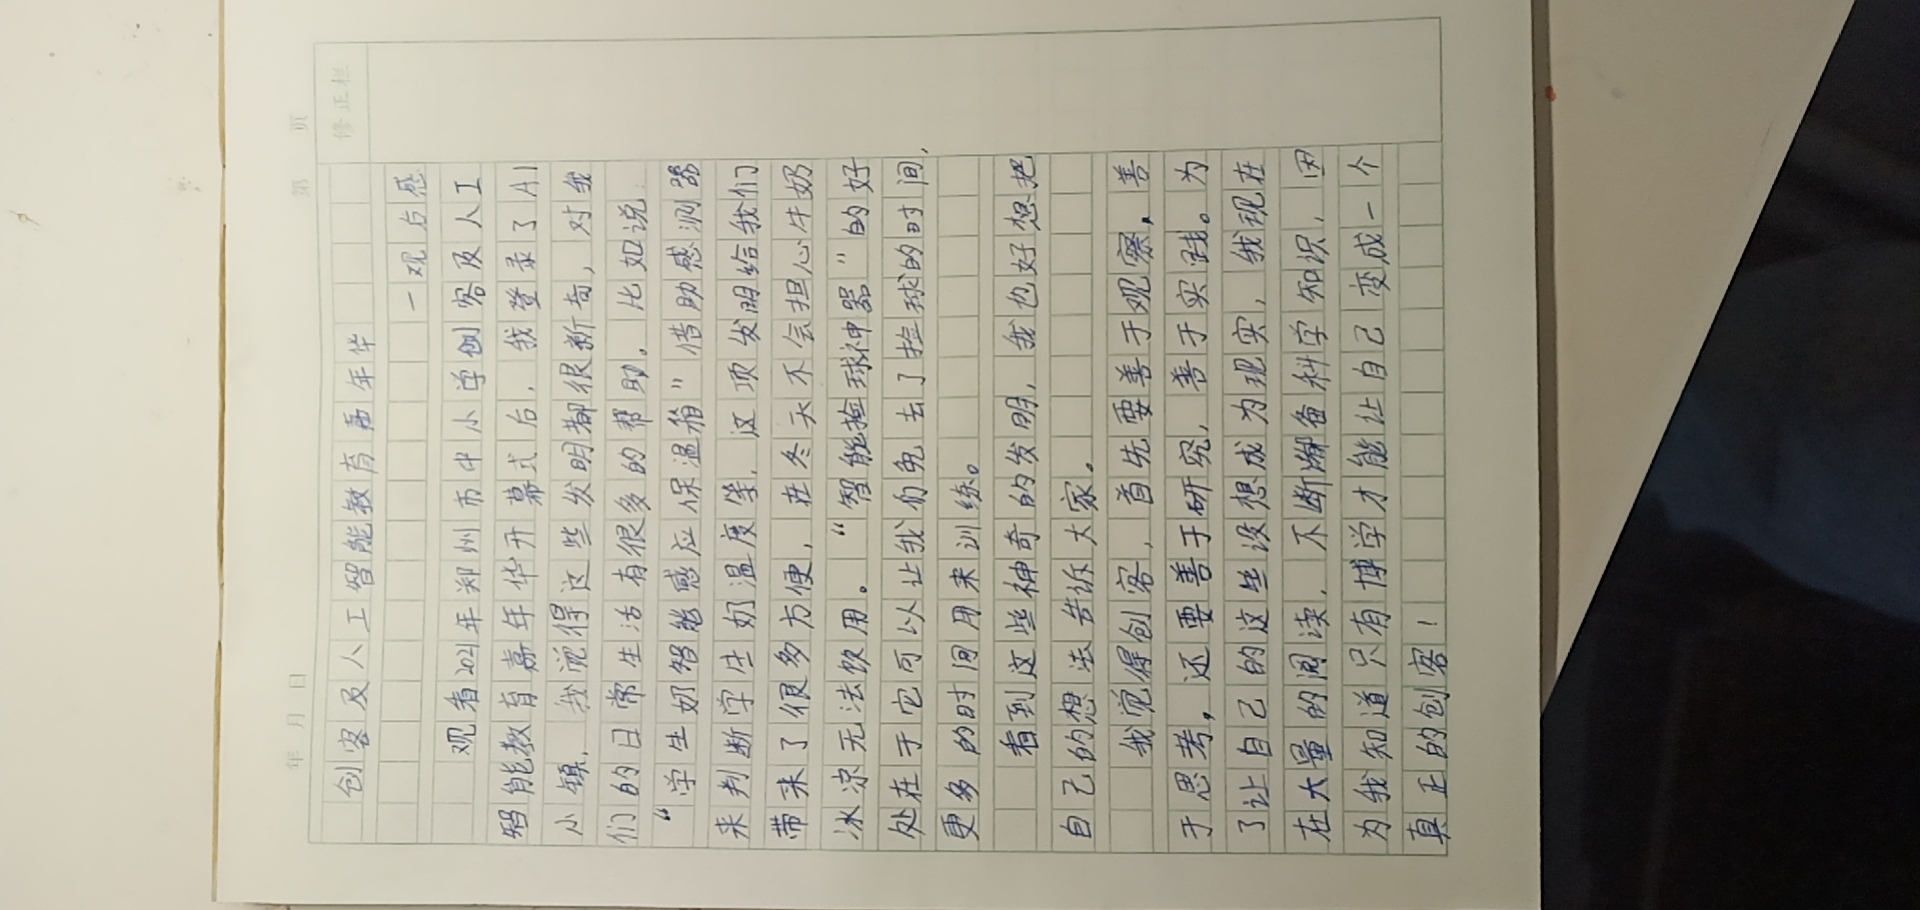 年 月 日 第 页
修正栏
创客及人工智能教育嘉年华
一观后感
观看2021年郑州市中小学创客及人工
智能教育嘉年华开幕式后，我登录了AI
小镇，我觉得这些发明都很新奇，对我
们的日常生活有很多的帮助。比如说：
“学生奶智能感应保温箱”借助感测器
来判断学生奶温度等，这项发明给我们
带来了很多方便，在冬天不会担心牛奶
冰凉无法饮用。“智能捡球神器”的好
处在于它可以让我们免去了捡球的时间，
更多的时间用来训练。
看到这些神奇的发明，我也好想把
自己的想法告诉大家。
我觉得创客，首先要善于观察，善
于思考，还要善于研究，善于实践。为
了让自己的这些设想成为现实，我现在
在大量的阅读，不断储备科学知识，因
为我知道只有博学才能让自己变成一个
真正的创客！